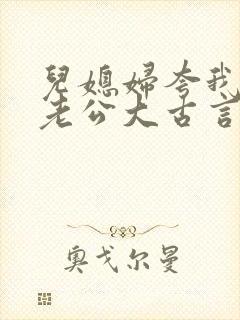 兒媳婦夸我
老公大古言
奧戈尔曼